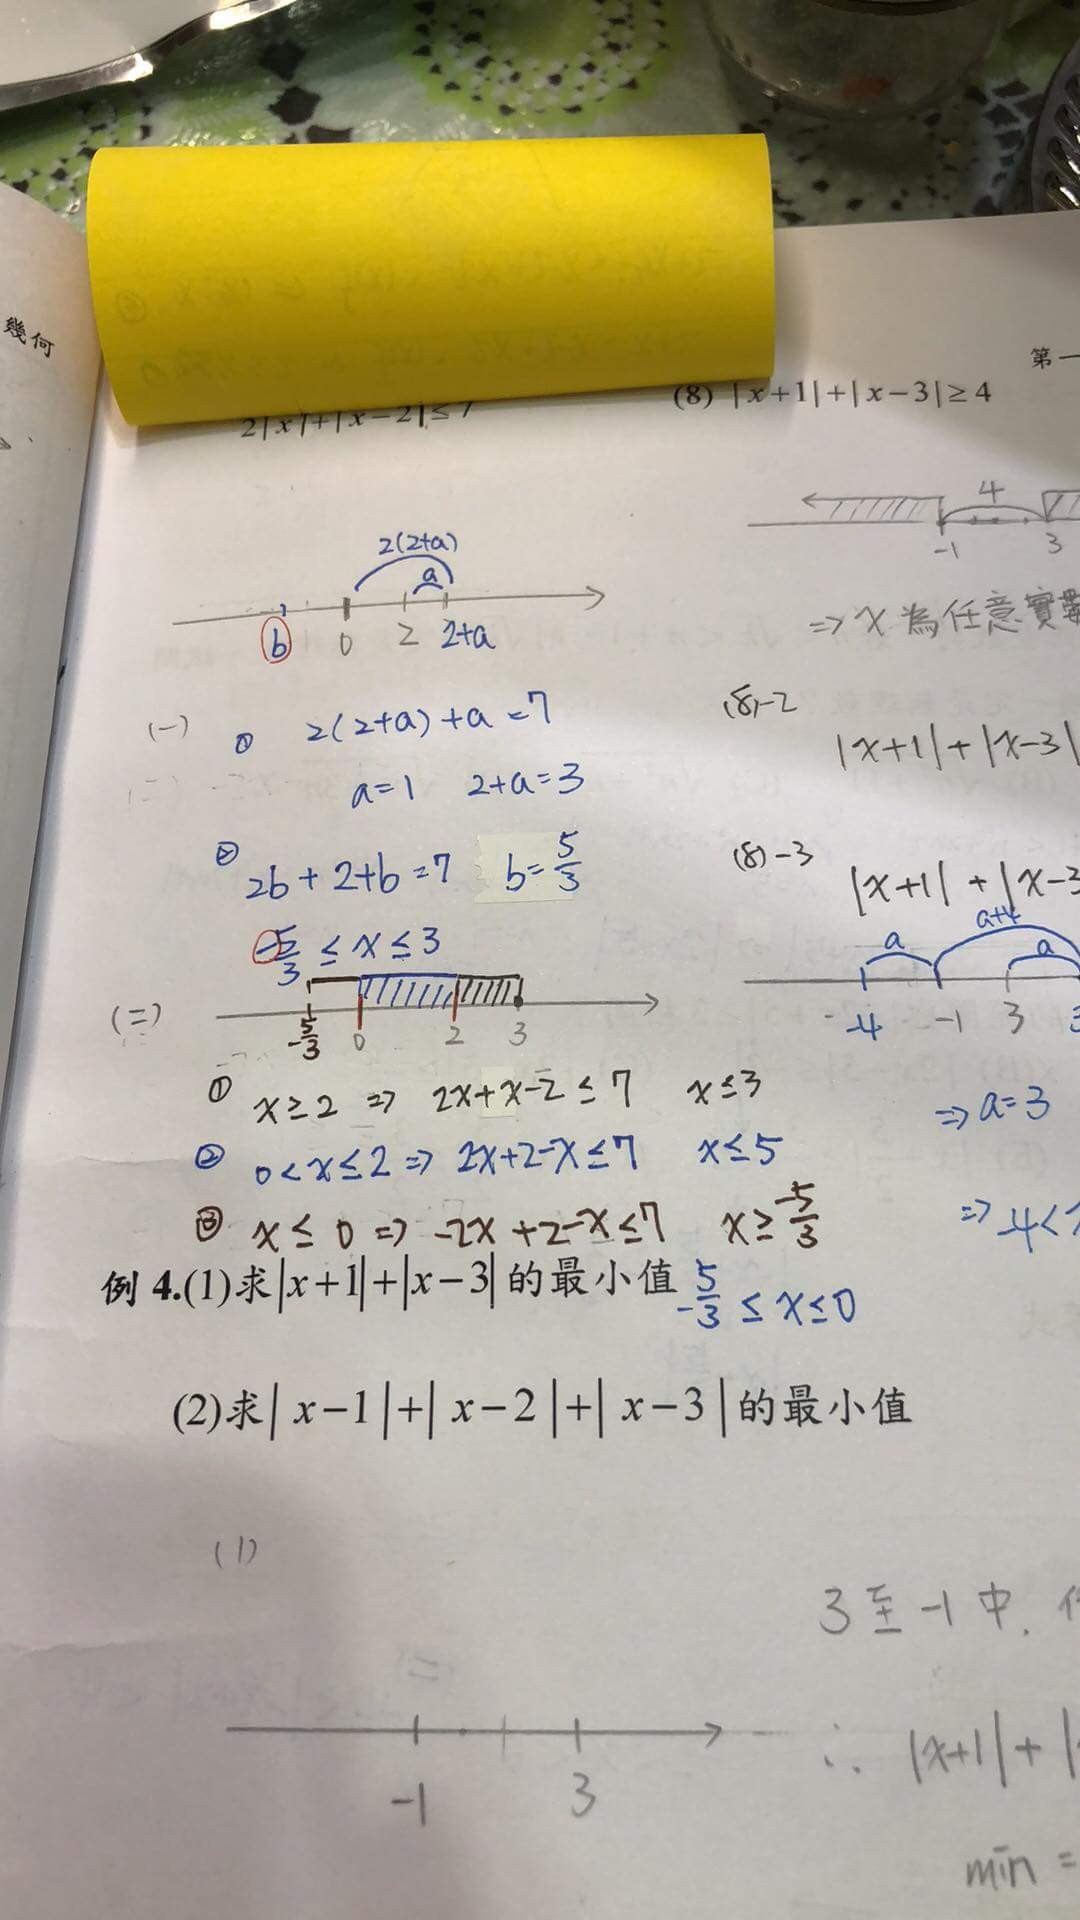 幾何
第一
2|x|+|x-2|≤7
(8) |x+1|+|x-3|≥4
2(2+a)
a
b 0 2 2+a
4
-1 3
⇒ x 為任意實數
(一) ① 2(2+a)+a=7
a=1 2+a=3
② 2b+2+b=7 b=5/3
-5/3 ≤ x ≤ 3
(8)-2
|x+1|+|x-3|
(8)-3
|x+1|+|x-3
a a+4 a
-4 -1 3
⇒ a=3
⇒ -4<
(二)
-5/3 0 2 3
① x≥2 ⇒ 2x+x-2≤7 x≤3
② 0<x≤2 ⇒ 2x+2-x≤7 x≤5
③ x≤0 ⇒ -2x+2-x≤7 x≥-5/3
例 4.(1)求|x+1|+|x-3|的最小值
-5/3 ≤ x ≤ 0
(2)求|x-1|+|x-2|+|x-3|的最小值
(1)
3至-1中.
-1 3
∴ |x+1|+|
min =